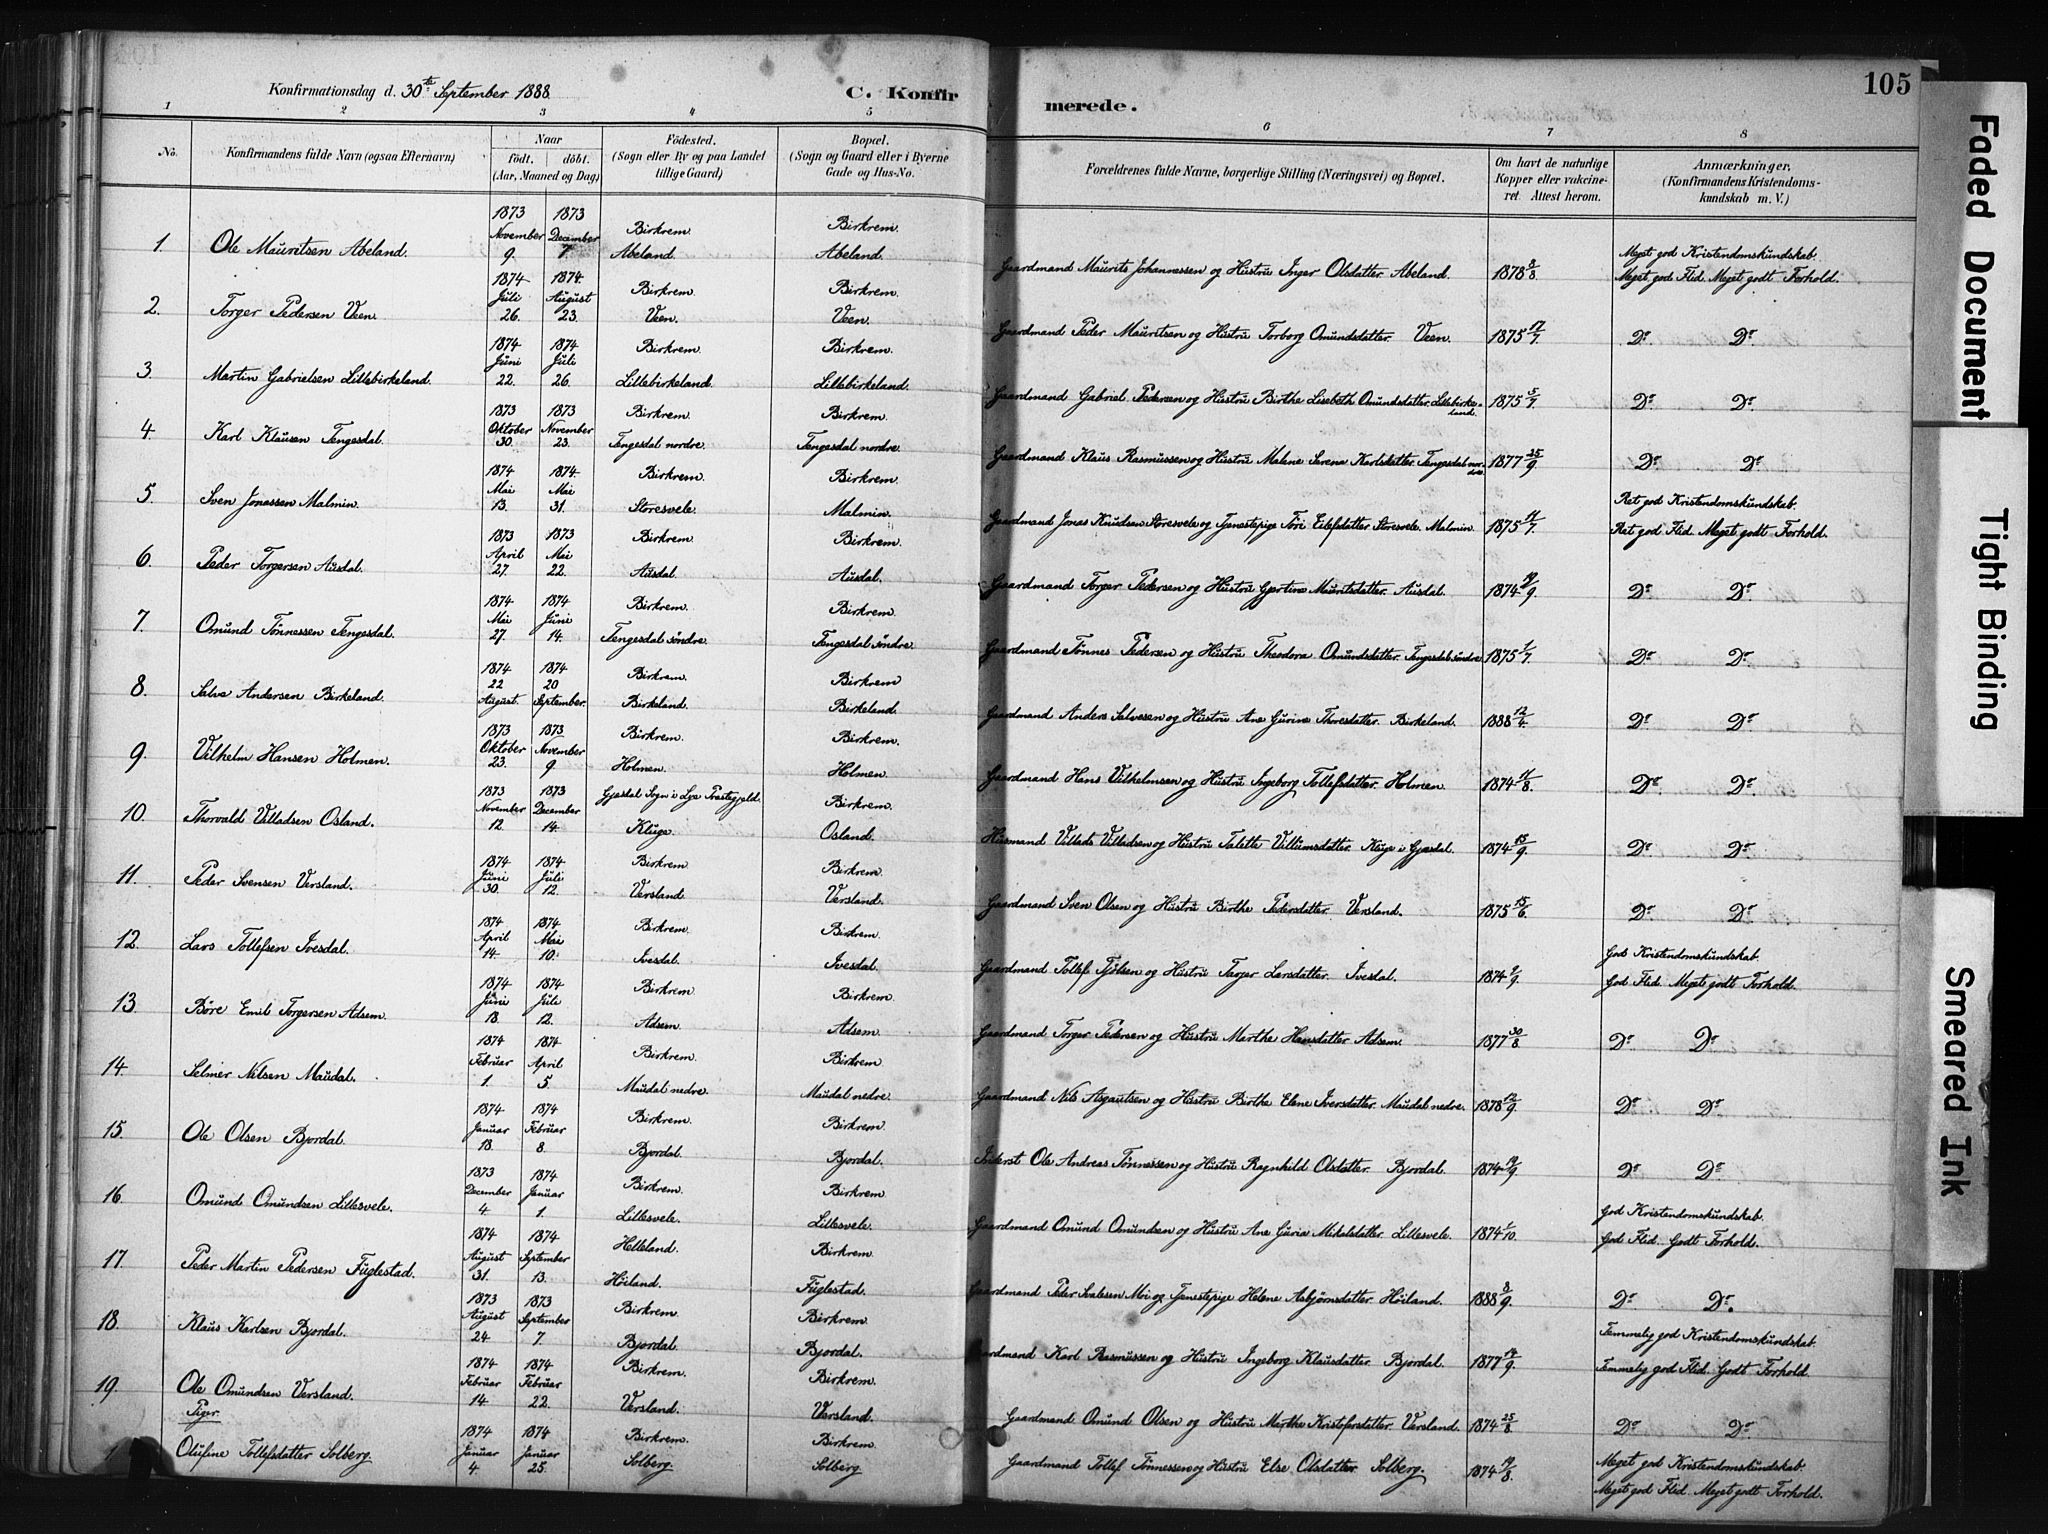 Konfirmationsdag d. 30te September 1888.
C. Konfirmerede.
105
1 2 3 4 5 6 7 8
No.
Konfirmandens fulde Navn (ogsaa Efternavn)
Naar
födt. döbt.
(Aar, Maaned og Dag)
Födested.
(Sogn eller By og paa Landet
tillige Gaard)
Bopæl.
(Sogn og Gaard eller i Byerne
Gade og Hus-No.
Forældrenes fulde Navne, borgerlige Stilling (Næringsvei) og Bopæl.
Om havt de naturlige
Kopper eller vakcine-
ret Attest herom.
Anmærkninger.
(Konfirmandens Kristendoms-
kundskab m. V.)
1. Ole Mauritsen Abeland. 1873 November 9. 1873 December 7. Birkrem. Abeland. Birkrem. Abeland. Gaardmand Maurits Johannessen og Hustru Inger Olsdatter Abeland. 1878 8/8. Meget god Kristendomskundskab. Meget god Flid. Meget godt Forhold.
2. Torger Pedersen Veen. 1874 Juli 26. 1874. August 23. Birkrem. Veen. Birkrem. Veen. Gaardmand Peder Mauritsen og Hustru Torborg Omundsdatter Veen. 1875 17/7. Do Do
3. Martin Gabrielsen Lillebirkeland. 1874 Juni 22. 1874 Juli 26. Birkrem. Lillebirkeland. Birkrem. Lillebirkeland. Gaardmand Gabriel Pedersen og Hustru Birthe Lisebeth Omundsdatter Lillebirkeland. 1875 5/7. Do Do
4. Karl Klausen Tengesdal. 1873 Oktober 30. 1873 November 23. Birkrem. Tengesdal nordre. Birkrem. Tengesdal nordre. Gaardmand Klaus Rasmussen og Hustru Malene Serena Karlsdatter Tengesdal nordre. 1877 25/9. Do Do
5. Sven Jonassen Malmin. 1874 Mai 13. 1874. Mai 31. Birkrem. Storesvele. Birkrem. Malmin. Gaardmand Jonas Knudsen Storesvele og Tjenestepige Tori Eilefsdatter Storesvele, Malmin. 1875 17/7. Ret god Kristendomskundskab. Ret god Flid. Meget godt Forhold.
6. Peder Torgersen Ausdal. 1873 April 27. 1873 Mai 22. Birkrem. Ausdal. Birkrem. Ausdal. Gaardmand Torger Pedersen og Hustru Gjertine Mauritsdatter Ausdal. 1874 19/9. Do Do
7. Omund Tønnessen Tengesdal. 1874 Mai 27. 1874 Juni 14. Birkrem. Tengesdal søndre. Birkrem. Tengesdal søndre. Gaardmand Tønnes Pedersen og Hustru Theodora Omundsdatter Tengesdal søndre 1875 1/7. Do Do
8. Salve Andersen Birkeland. 1874 22 August. 1874 20 September. Birkrem. Birkeland. Birkrem Birkeland. Gaardmand Anders Salvesen og Hustru Ane Gurine Thoresdatter Birkeland. 1888 12/4. Do Do
9. Vilhelm Hansen Holmen. 1873 Oktober 23. 1873 November 9. Birkrem. Holmen. Birkrem. Holmen. Gaardmand Hans Vilhelmsen og Hustru Ingeborg Tollefsdatter Holmen. 1874 11/8. Do Do
10. Thorvald Villadsen Osland. 1873 November 12. 1873 December 14. Gjesdal Sogn i Lye Præstegjeld. Kluge. Birkrem. Osland. Husmand Villads Villadsen og Hustru Talette Villumsdatter i Gjesdal. 1874 15/9. Do Do
11. Peder Svensen Versland. 1874 Juni 30. 1874 Juli 12. Birkrem. Versland Birkrem. Versland. Gaardmand Sven Olsen og Hustru Birthe Pedersdatter Versland. 1875 15/6. Do Do
12. Lars Tollefsen Ivesdal. 1874 April 14. 1874 Mai 10. Birkrem. Ivesdal. Birkrem. Ivesdal. Gaardmand Tollef Tjølsen og Hustru Tarjer Larsdatter Ivesdal. 1874 9/9. God Kristendomskundskab. God Flid. Meget godt Forhold.
13. Børe Emil Torgersen Adsem. 1874 Juni 18. 1874 Juli 12. Birkrem. Adsem. Birkrem. Adsem. Gaardmand Torger Pedersen og Hustru Marthe Hansdatter Adsem. 1877 30/8. Do Do
14. Selmer Nilsen Maudal. 1874 Februar 1. 1874 April 5. Birkrem. Maudal nedre. Birkrem. Maudal nedre. Gaardmand Nils Asgautsen og Hustru Birthe Elene Iversdatter Maudal nedre. 1878 12/9. Do Do
15. Ole Olsen Bjordal. 1874 Januar 18. 1874 Februar 8. Birkrem. Bjordal. Birkrem. Bjordal. Inderst Ole Andreas Tønnessen og Hustru Ragnhild Olsdatter Bjordal. 1874 19/9. Do Do
16. Omund Omundsen Lillesvele. 1873 December 4 1874 Januar 1. Birkrem. Lillesvele. Birkrem. Lillesvele. Gaardmand Omund Omundsen og Hustru Ane Guria Mikalsdatter Lillesvele. 1874 1/10. God Kristendomskundskab. God Flid. Godt Forhold.
17. Peder Martin Pedersen Fuglestad. 1874 August 31. 1874 September 13. Helleland. Høiland. Birkrem. Fuglestad. Gaardmand Peder Svalesen Moi og Tjenestepige Helene Asbjørnsdatter Høiland. 1888 8/9. Do Do.
18. Klaus Karlsen Bjordal. 1873 August 24 1873 September 7. Birkrem. Bjordal. Birkrem. Bjordal. Gaardmand Karl Rasmussen og Hustru Ingeborg Klausdatter Bjordal. 1877 14/9. Temmelig god Kristendomskundskab. Temmelig god Flid. Godt Forhold.
19. Ole Omundsen Versland. 1874 Februar 14 1874 Februar 22. Birkrem. Versland. Birkrem. Versland. Gaardmand Omund Olsen og Hustru Marthe Kristofersdatter Versland. 1874 25/8. Do Do
Piger.
1 Olufine Tollefsdatter Solberg. 1874 Januar 4 1874 Januar 25. Birkrem. Solberg. Birkrem. Solberg Gaardmand Tollef Tønnessen og Hustru Else Olsdatter Solberg. 1874 19/8. Meget god Kristendomskundskab. Meget god Flid. Meget godt Forhold.
Faded Document
Tight Binding
Smeared Ink